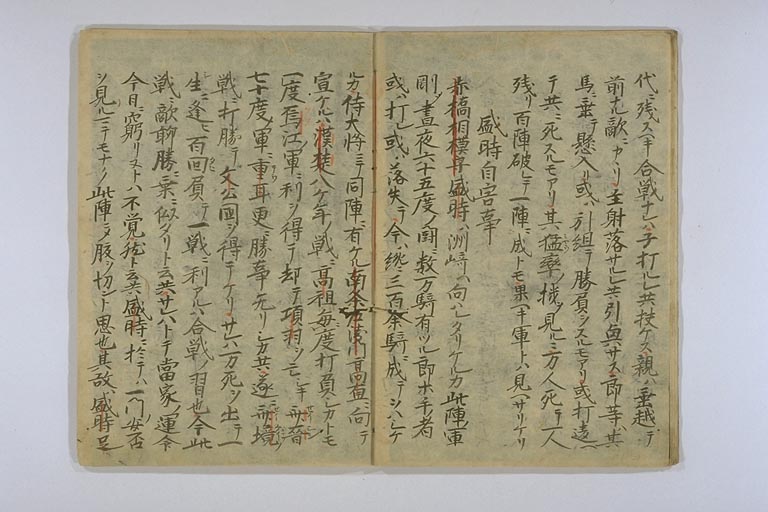 代ニ残スヘキ合戦ナレハ子打ルレ共扶ケス親ハ乗越テ
前ナル敵ニカヽリ主射落サルレ共引興サス郎等ハ其
馬ニ乗テ懸入リ或ハ引組テ勝負シスルモアリ或打違
テ共ニ死スルモアリ其猛卒ノ機ヲ見ルニ万人死テ一人
残リ百陣破レテ一陣ニ成トモ果ヘキ軍トハ見ヘサリケリ
盛時自害事
赤橋相模守盛時ハ洲崎ヘ向ハレタリケルカ此陣ノ軍
剛ノ昼夜六十五度ノ間ニ数万騎有ツル郎等手者
或ハ打レ或ハ落失テ今ハ纔ニ三百余騎ニ成テシハシケ
ルカ侍大将ニテ同陣ニ有ケル南条左衛門高直ニ向テ
宣ケルハ漢楚八ケ年ノ戦ニ高祖毎度打負シカトモ
一度烏江ノ軍ニ利ヲ得テ却テ項羽ヲ亡シキ斉晋
七十度ノ軍ニ重耳更ニ勝事无リシカ共遂ニ斉境ノ
戦ニ打勝テ文公国ヲ得テケリサレハ万死ヲ出テ一
生ニ逢ヒ百回負テ一戦ニ利アルハ合戦ノ習也今此
戦ニ敵聊勝ニ乗ニ似タリト云共サレハトテ當家ノ運命
今日ニ窮リヌトハ不覚然ト云共盛時ニ於テハ一門ノ安否
ヲ見ルニテモナク此陣ニテ腹ヲ切ント思也其故ハ盛時足